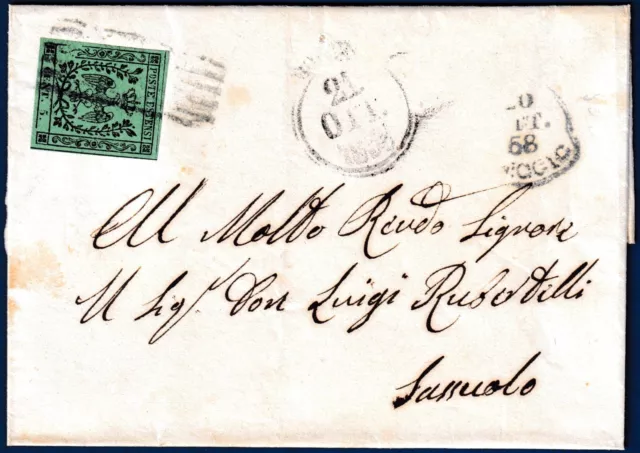 POSTE ESTENSI
CENT. 5.
21
OTT.
58
Al Molto Revdo Signore
Il Sigr Don Luigi Rubertelli
Sassuolo